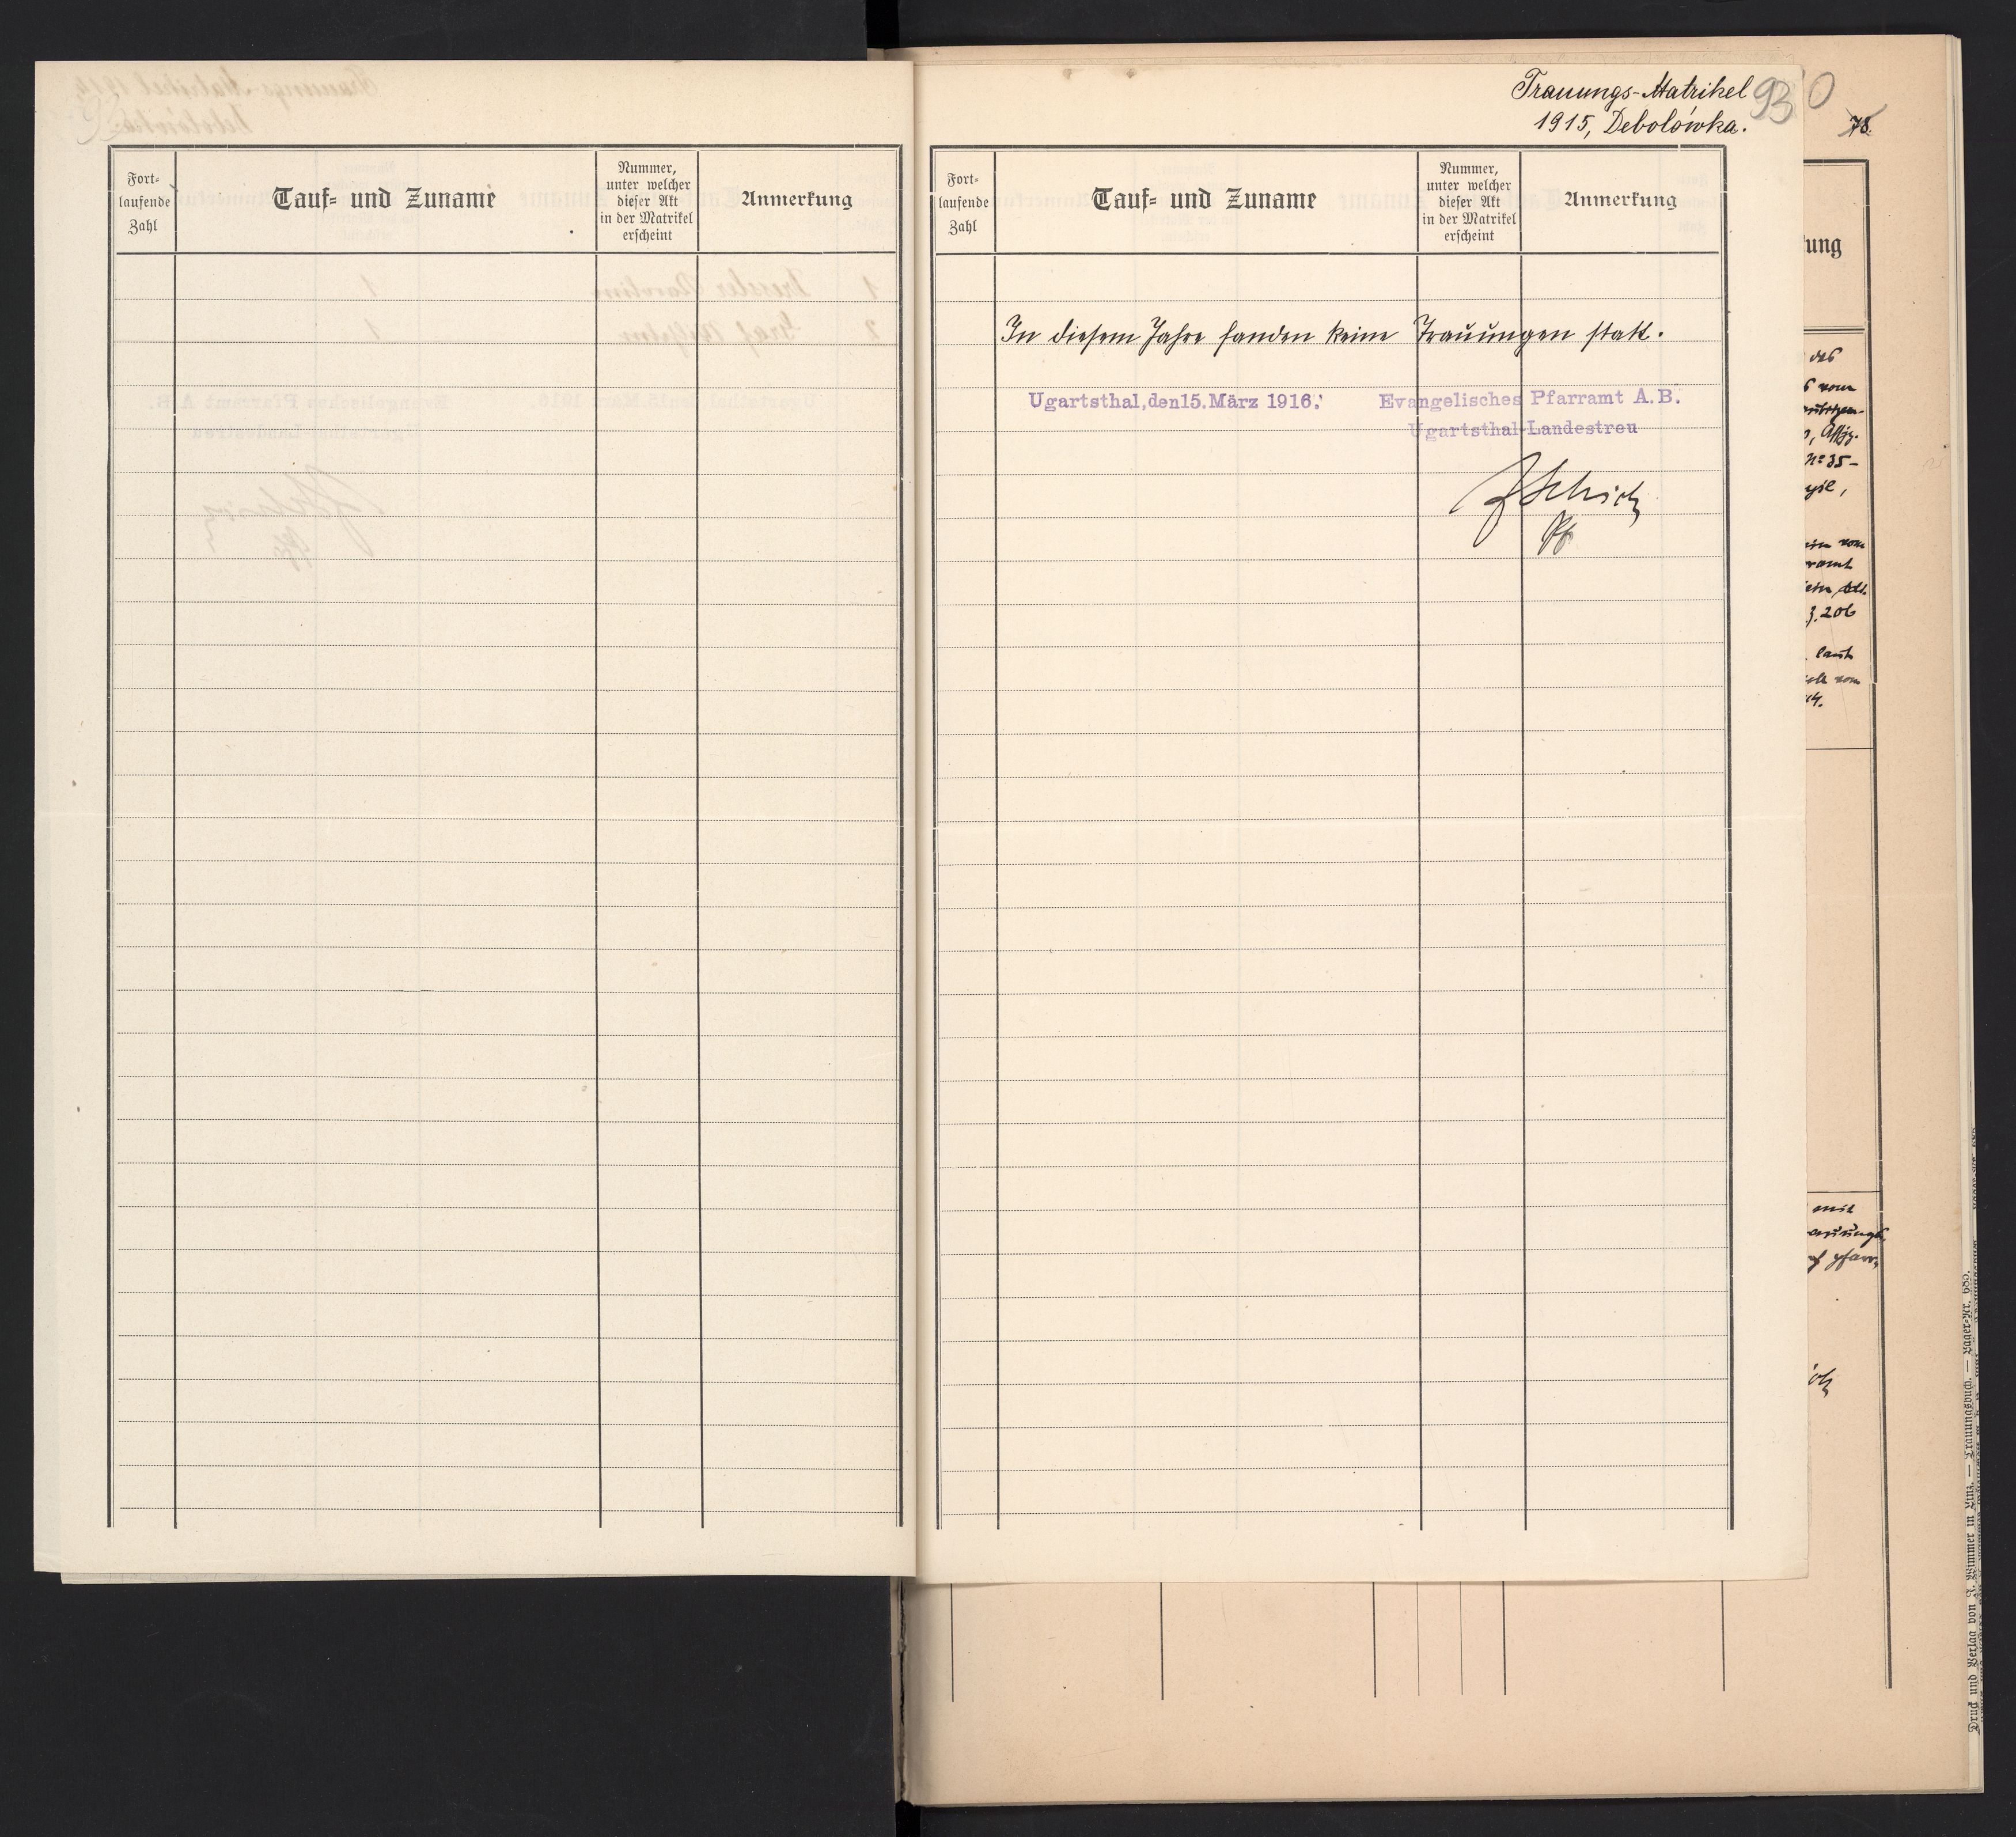 Fort-
laufende
Zahl
Tauf- und Zuname
Nummer,
unter welcher
dieser Akt
in der Matrikel
erscheint
Anmerkung
Trauungs-Matrikel
1915, Debolówka.
93
78.
Fort-
laufende
Zahl
Tauf- und Zuname
Nummer,
unter welcher
dieser Akt
in der Matrikel
erscheint
Anmerkung
In diesem Jahre fanden keine Trauungen statt.
Ugartsthal, den 15. März 1916. Evangelisches Pfarramt A.B.
Ugartsthal-Landestreu
ung
das
vom
No 35-
vom
ramt
3.206
laut
vom
mit
Druck und Verlag von J. Wimmer in Linz. — Trauungsbuch. — Lager-Nr. 685.